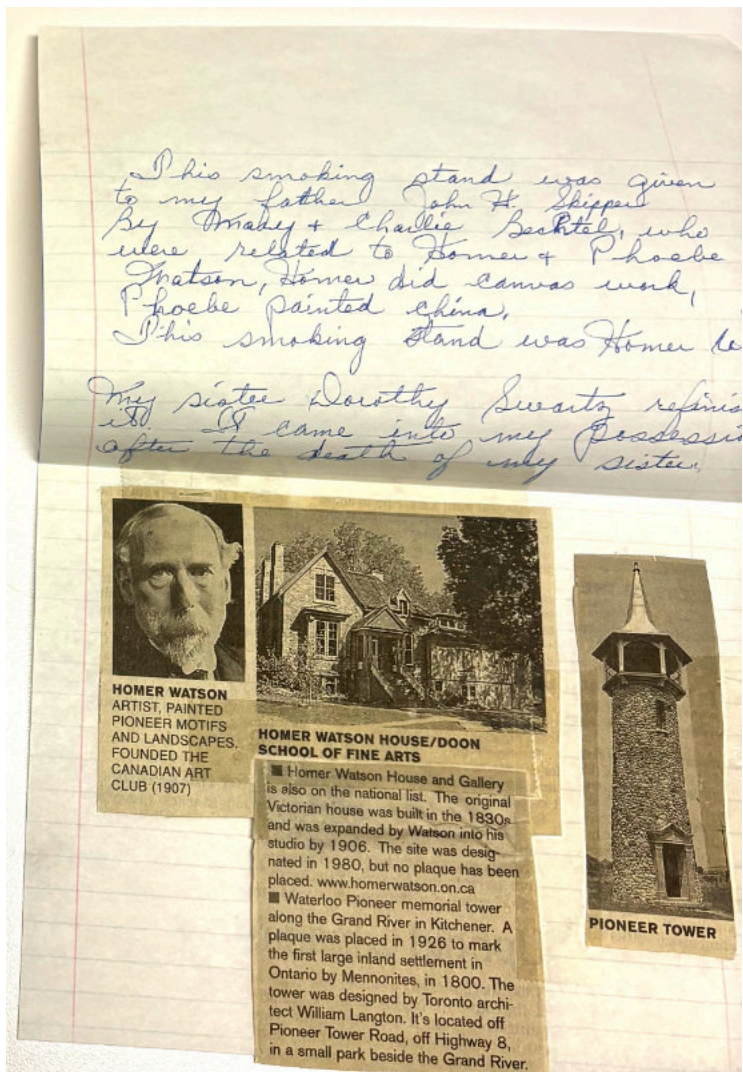 This smoking stand was given
to my father John H. Skipper
By Mary + Charlie Bechtel, who
were related to Homer + Phoebe
Watson, Homer did canvas work,
Phoebe painted china.
This smoking stand was Homer
My sister Dorothy Swartz refinis
it. It came into my possessi
after the death of my sister.
HOMER WATSON
ARTIST, PAINTED
PIONEER MOTIFS
AND LANDSCAPES.
FOUNDED THE
CANADIAN ART
CLUB (1907)
HOMER WATSON HOUSE/DOON
SCHOOL OF FINE ARTS
■ Homer Watson House and Gallery
is also on the national list. The original
Victorian house was built in the 1830s
and was expanded by Watson into his
studio by 1906. The site was desig-
nated in 1980, but no plaque has been
placed. www.homerwatson.on.ca
■ Waterloo Pioneer memorial tower
along the Grand River in Kitchener. A
plaque was placed in 1926 to mark
the first large inland settlement in
Ontario by Mennonites, in 1800. The
tower was designed by Toronto archi-
tect William Langton. It's located off
Pioneer Tower Road, off Highway 8,
in a small park beside the Grand River.
PIONEER TOWER